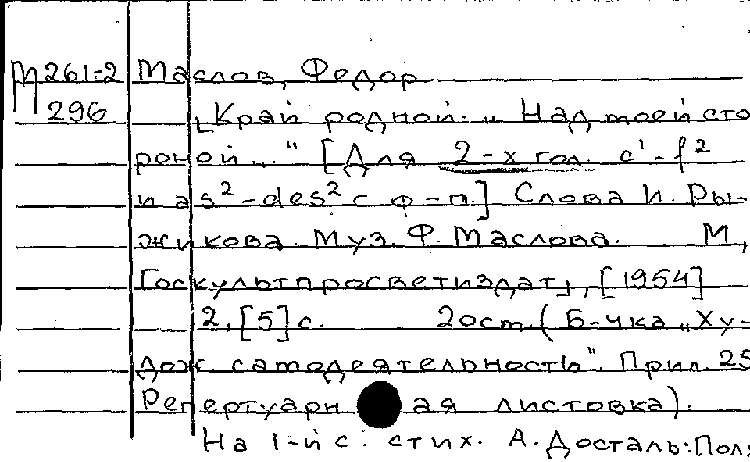 М261-2 Маслов, Федор
296 Край родной. „Над моей сто
роной..." [Для 2-х гол. c¹-f²
и as²-des² с ф-п.] Слова И. Ры-
жикова. Муз. Ф. Маслова. М,
Госкультпросветиздат, [1954]
2, [5] с. 20ст. (Б-чка „Ху-
дож. самодеятельность". Прил. 25
Репертуарн ая листовка).
На 1-й с. стих. А. Досталь: Пол: